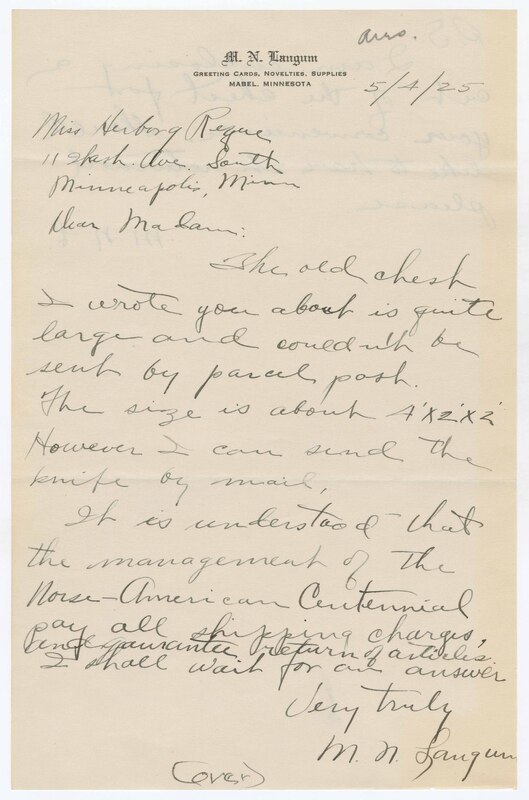 ans.
M. N. Langum
GREETING CARDS, NOVELTIES, SUPPLIES
MABEL, MINNESOTA
5/4/25
Miss Herborg Reque
11 Wash. Ave. South
Minneapolis, Minn
Dear Madam:
The old chest
I wrote you about is quite
large and couldn't be
sent by parcel post.
The size is about 4'x2'x2'
However I can send the
knife by mail.
It is understood that
the management of the
Norse-American Centennial
pay all shipping charges,
and guarantee return of articles.
I shall wait for an answer
Very truly
M. N. Langum
(over)